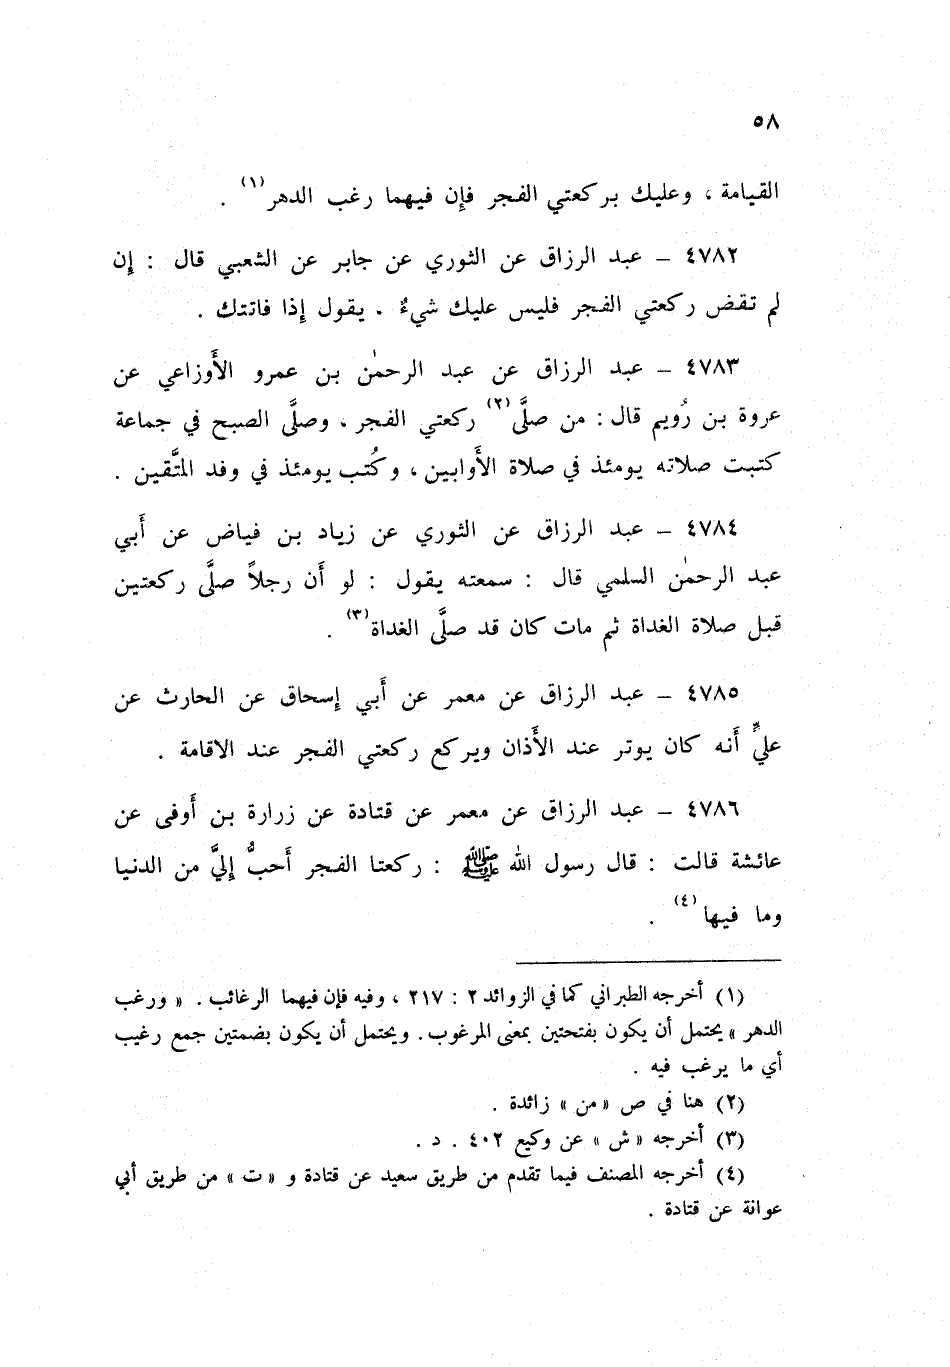 ٥٨
القيامة ، وعليك بركعتي الفجر فإن فيهما رغب الدهر(١) .
٤٧٨٢ – عبد الرزاق عن الثوري عن جابر عن الشعبي قال : إن
لم تقض ركعتي الفجر فليس عليك شيءٌ . يقول إذا فاتتك .
٤٧٨٣ – عبد الرزاق عن عبد الرحمٰن بن عمرو الأَوزاعي عن
عروة بن رُويم قال : من صلَّى(٢) ركعتي الفجر ، وصلَّى الصبح في جماعة
كتبت صلاته يومئذ في صلاة الأَوابين ، وكُتب يومئذ في وفد المتَّقين .
٤٧٨٤ – عبد الرزاق عن الثوري عن زياد بن فياض عن أَبي
عبد الرحمٰن السلمي قال : سمعته يقول : لو أَن رجلاً صلَّى ركعتين
قبل صلاة الغداة ثم مات كان قد صلَّى الغداة(٣) .
٤٧٨٥ – عبد الرزاق عن معمر عن أَبي إسحاق عن الحارث عن
عليٍّ أَنه كان يوتر عند الأَذان ويركع ركعتي الفجر عند الاقامة .
٤٧٨٦ – عبد الرزاق عن معمر عن قتادة عن زرارة بن أَوفى عن
عائشة قالت : قال رسول الله ﷺ : ركعتا الفجر أَحبُّ إليَّ من الدنيا
وما فيها(٤) .
(١) أخرجه الطبراني كما في الزوائد ٢ : ٢١٧ ، وفيه فإن فيهما الرغائب . « ورغب
الدهر » يحتمل أن يكون بفتحتين بمعنى المرغوب . ويحتمل أن يكون بضمتين جمع رغيب
أي ما يرغب فيه .
(٢) هنا في ص « من » زائدة .
(٣) أخرجه « ش » عن وكيع ٤٠٢ . د .
(٤) أخرجه المصنف فيما تقدم من طريق سعيد عن قتادة و « ت » من طريق أبي
عوانة عن قتادة .